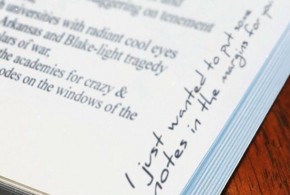 ggering on tenement
universities with radiant cool eyes
Arkansas and Blake-light tragedy
lars of war,
the academies for crazy &
odes on the windows of the
I just wanted to put some
notes in the margins for you